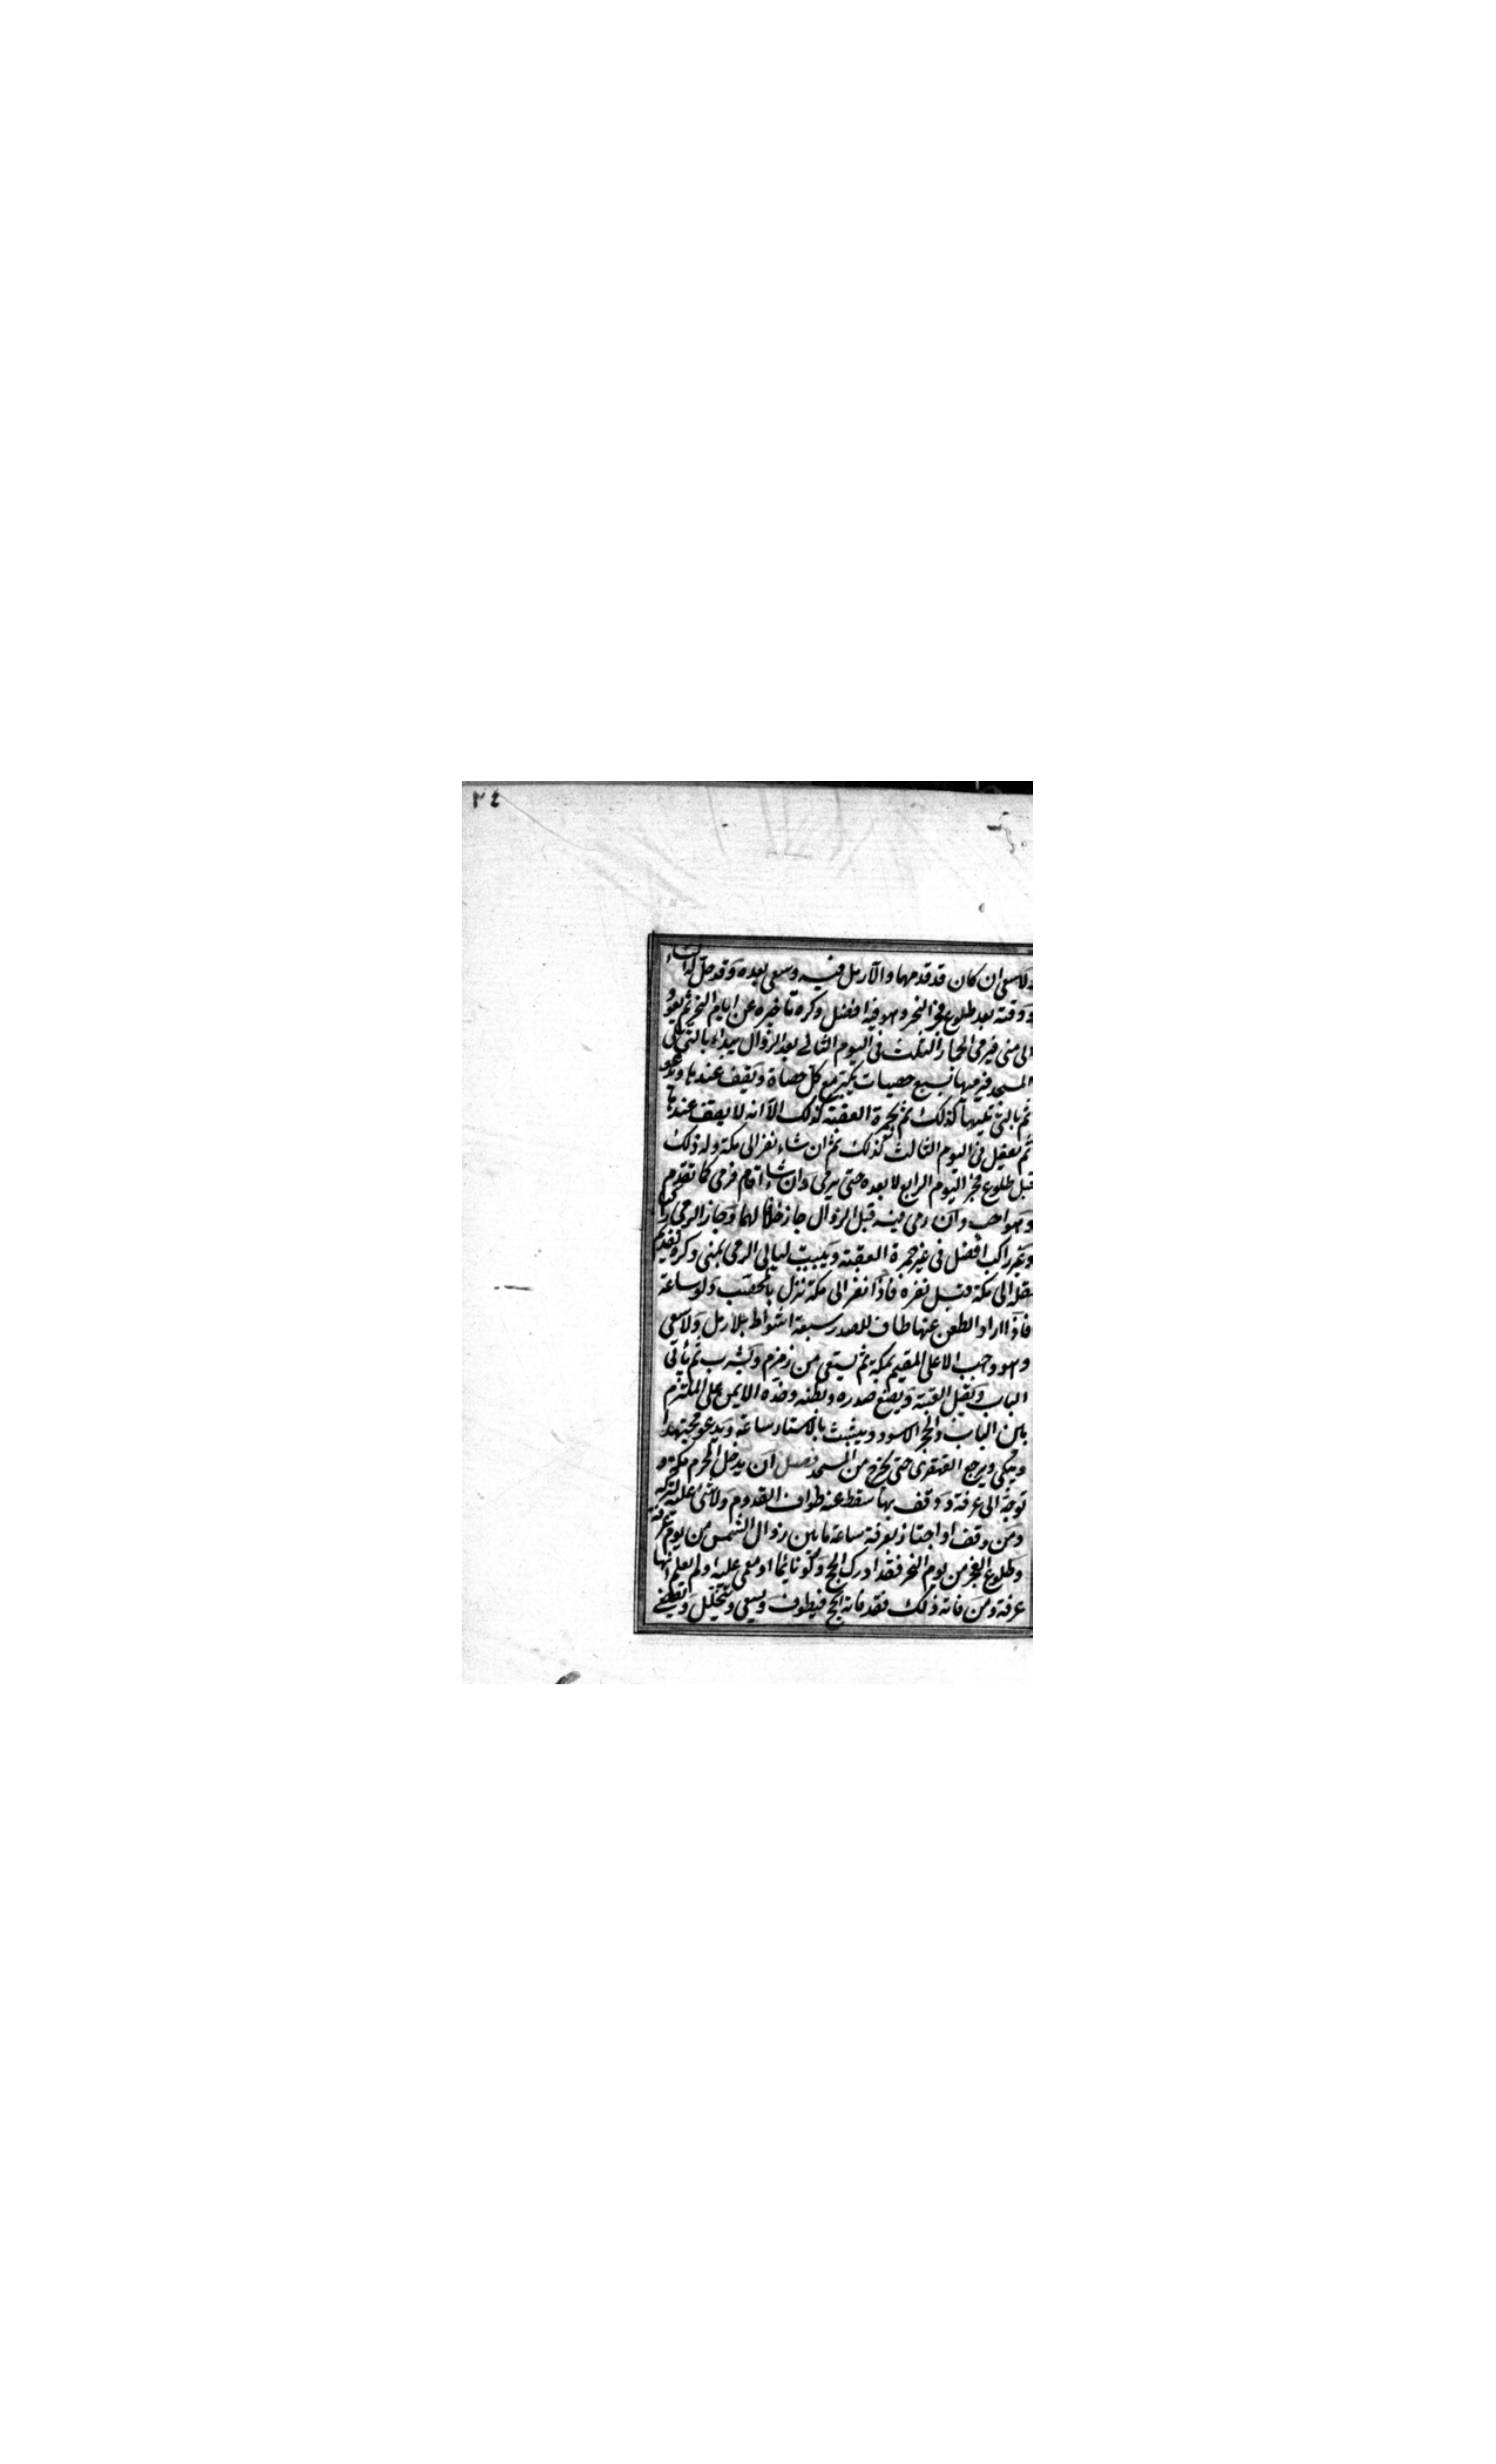 ٢٤
ولا سعى ان كان قد قدمهما والا رمل فيه وسعى بعده وقد حل له النساء
ووقته بعد طلوع فجر النحر وهو فيه افضل وكره تأخيره عن ايام النحر ثم يعود
الى منى فيرمى الجمار الثلث فى اليوم الثانى بعد الزوال يبداء بالتى تلى
المسجد فيرميها بسبع حصيات يكبر مع كل حصاة ويقف عندها ويدعو
ثم بالتى تليها كذلك ثم بجمرة العقبة كذلك الا انه لا يقف عندها
ثم يفعل فى اليوم الثالث كذلك ثم ان شاء نفر الى مكة وله ذلك
قبل طلوع فجر اليوم الرابع لا بعده حتى يرمى وان شاء اقام فرمى كما تقدم
وهو احب وان رمى فيه قبل الزوال جاز خلافا لهما وجاز الرمى راكبا
وغير راكب افضل فى غير جمرة العقبة ويبيت ليالى الرمى بمنى وكره تقديم
ثقله الى مكة قبل نفره فاذا نفر الى مكة نزل بالمحصب ولو ساعة
فاذا اراد الظعن عنها طاف للصدر سبعة اشواط بلا رمل ولا سعى
وهو واجب الا على المقيم بمكة ثم يستقى من زمزم ويشرب ثم يأتى
الباب ويقبل العتبة ويضع صدره وبطنه وخده الايمن على الملتزم
بين الباب والحجر الاسود ويتشبث بالاستار ساعة ويدعو مجتهدا
ويبكى ويرجع القهقرى حتى يخرج من المسجد فصل ان لم يدخل المحرم مكة و
توجه الى عرفة ووقف بها سقط عنه طواف القدوم ولا شى عليه لتركه
ومن وقف او اجتاز بعرفة ساعة ما بين زوال الشمس من يوم عرفة
وطلوع الفجر من يوم النحر فقد ادرك الحج ولو نايما او مغمى عليه ولم يعلم انها
عرفة ومن فاته ذلك فقد فاته الحج فيطوف ويسعى ويتحلل ويقضى